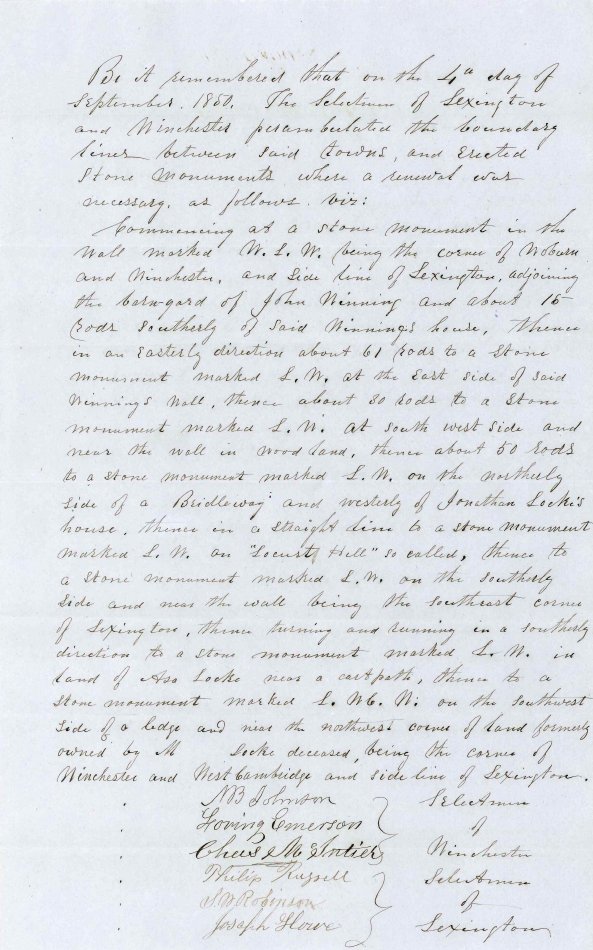 Be it remembered that on the 4th day of
September, 1850, The Selectmen of Lexington
and Winchester perambulated the boundary
lines between said towns, and Erected
Stone Monuments where a renewal was
necessary, as follows. viz:
Commencing at a stone monument in the
Wall marked W. L. W. being the corner of Woburn
and Winchester, and side line of Lexington, adjoining
the barn-yard of John Winning and about 15
rods southerly of said Winnings house, thence
in an Easterly direction about 61 rods to a Stone
monument marked L. W. at the East side of said
Winnings Wall, thence about 80 rods to a Stone
monument marked L. W. at south west side and
near the wall in wood land, thence about 50 rods
to a stone monument marked L. W. on the northerly
side of a Bridleway and westerly of Jonathan Locke's
house, thence in a straight line to a stone monument
marked L. W. on "Locust Hill" so called, thence to
a stone monument marked L. W. on the southerly
side and near the wall being the southeast corner
of Lexington, thence turning and running in a southerly
direction to a stone monument marked L. W. in
land of Asa Locke near a cartpath, thence to a
stone monument marked L. W. on the southwest
side of a ledge and near the northwest corner of land formerly
owned by M Locke deceased, being the corner of
Winchester and West Cambridge and side line of Lexington.
N B Johnson Selectmen
Loving Emerson of
Chas McIntier Winchester
Philip Russell Selectmen
S W Robinson of
Joseph Howe Lexington